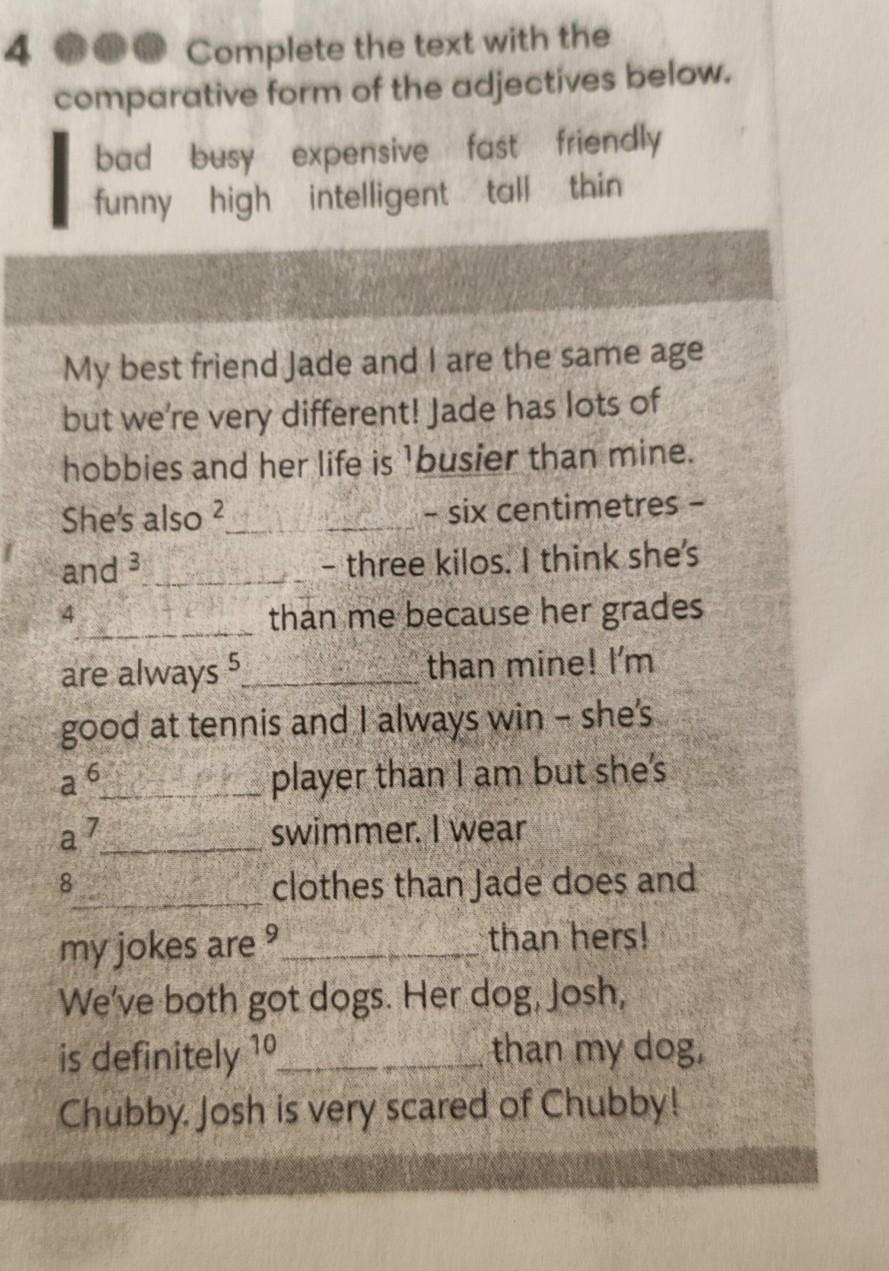 4 Complete the text with the
comparative form of the adjectives below.
bad busy expensive fast friendly
funny high intelligent tall thin
My best friend Jade and I are the same age
but we're very different! Jade has lots of
hobbies and her life is ¹busier than mine.
She's also ² – six centimetres –
and ³ – three kilos. I think she's
⁴ than me because her grades
are always ⁵ than mine! I'm
good at tennis and I always win – she's
a ⁶ player than I am but she's
a ⁷ swimmer. I wear
⁸ clothes than Jade does and
my jokes are ⁹ than hers!
We've both got dogs. Her dog, Josh,
is definitely ¹⁰ than my dog,
Chubby. Josh is very scared of Chubby!